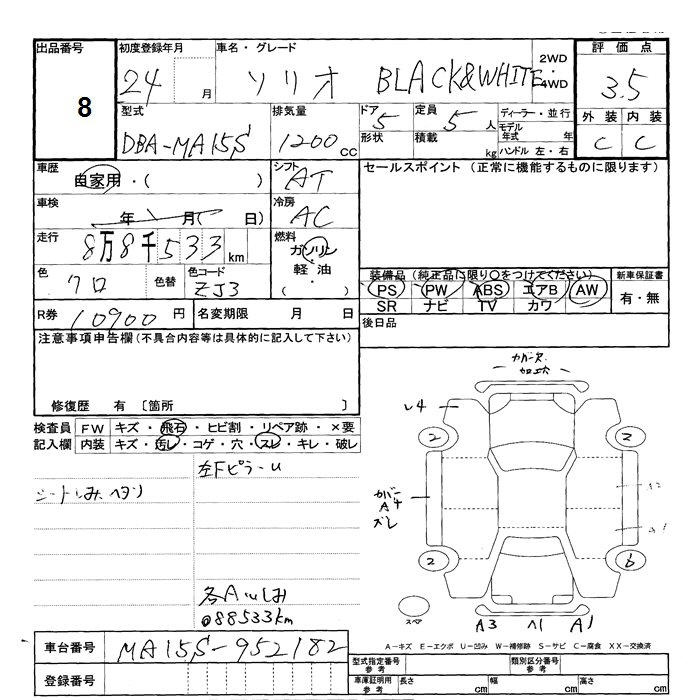 出品番号 8
初度登録年月 24 月
車名・グレード ソリオ BLACK&WHITE
2WD
4WD
評価点 3.5
外装 内装
C C
型式 DBA-MA15S
排気量 1200 CC
ドア 5
形状
定員 5 人
積載 kg
ディーラー・並行
モデル年式 年
ハンドル 左・右
車歴 自家用・( )
シフト AT
セールスポイント (正常に機能するものに限ります)
車検 年 月( 日)
冷房 AC
走行 8万8千533km
燃料 ガソリン
軽油
・( )
色 クロ 色替
色コード ZJ3
装備品 (純正品に限り○をつけてください)
新車保証書
PS PW ABS エアB AW
有・無
SR ナビ TV カワ
R券 10900 円
名変期限 月 日
後日品
注意事項申告欄(不具合内容等は具体的に記入して下さい)
修復歴 有 〔箇所 〕
検査員 FW キズ・飛石・ヒビ割・リペア跡・×要
記入欄 内装 キズ・汚レ・コゲ・穴・スレ・キレ・破レ
左FピラーU
シートしみ、ヘタリ
各Aいしみ
@88533km
カバー
A4
ズレ
2 2
2 6
スペア
A3 ハ1 A1
A-キズ E-エクボ U-凹み W-補修跡 S-サビ C-腐食 XX-交換済
車台番号 MA15S-952182
登録番号
型式指定番号 参考
類別区分番号 参考
車庫証明用 参考 長さ cm 幅 cm 高さ cm